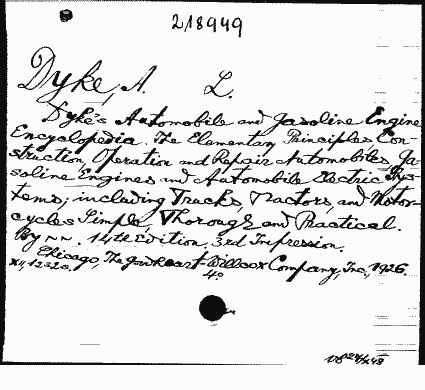 218949
Dyke, A. L.
Dyke's Automobile and Gasoline Engine
Encyclopedia. The Elementary Principles, Con-
struction, Operation and Repair Automobiles, Ga-
soline Engines and Automobile Electric Sys-
tems; including Trucks, Tractors, and Motor-
cycles Simple, Thorough and Practical.
By ~ ~. 14th Edition, 3rd Impression.
Chicago, The Goodheart-Willcox Company, Inc., 1926.
XII, 1232 p. 4o